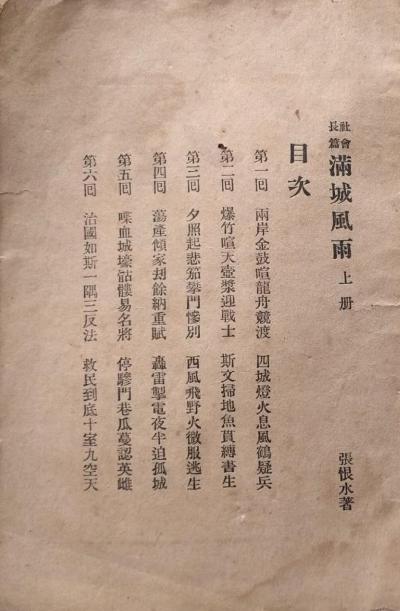 社會長篇 滿城風雨 上册 張恨水著
目次
第一回 兩岸金鼓喧龍舟競渡 四城燈火息風鶴疑兵
第二回 爆竹喧天壺漿迎戰士 斯文掃地魚貫縛書生
第三回 夕照起悲笳攀門慘別 西風飛野火微服逃生
第四回 蕩產傾家刼餘納重賦 轟雷掣電夜半迫孤城
第五回 喋血城壕骷髏易名將 停驂門巷瓜蔓認英雌
第六回 治國如斯一隅三反法 救民到底十室九空天